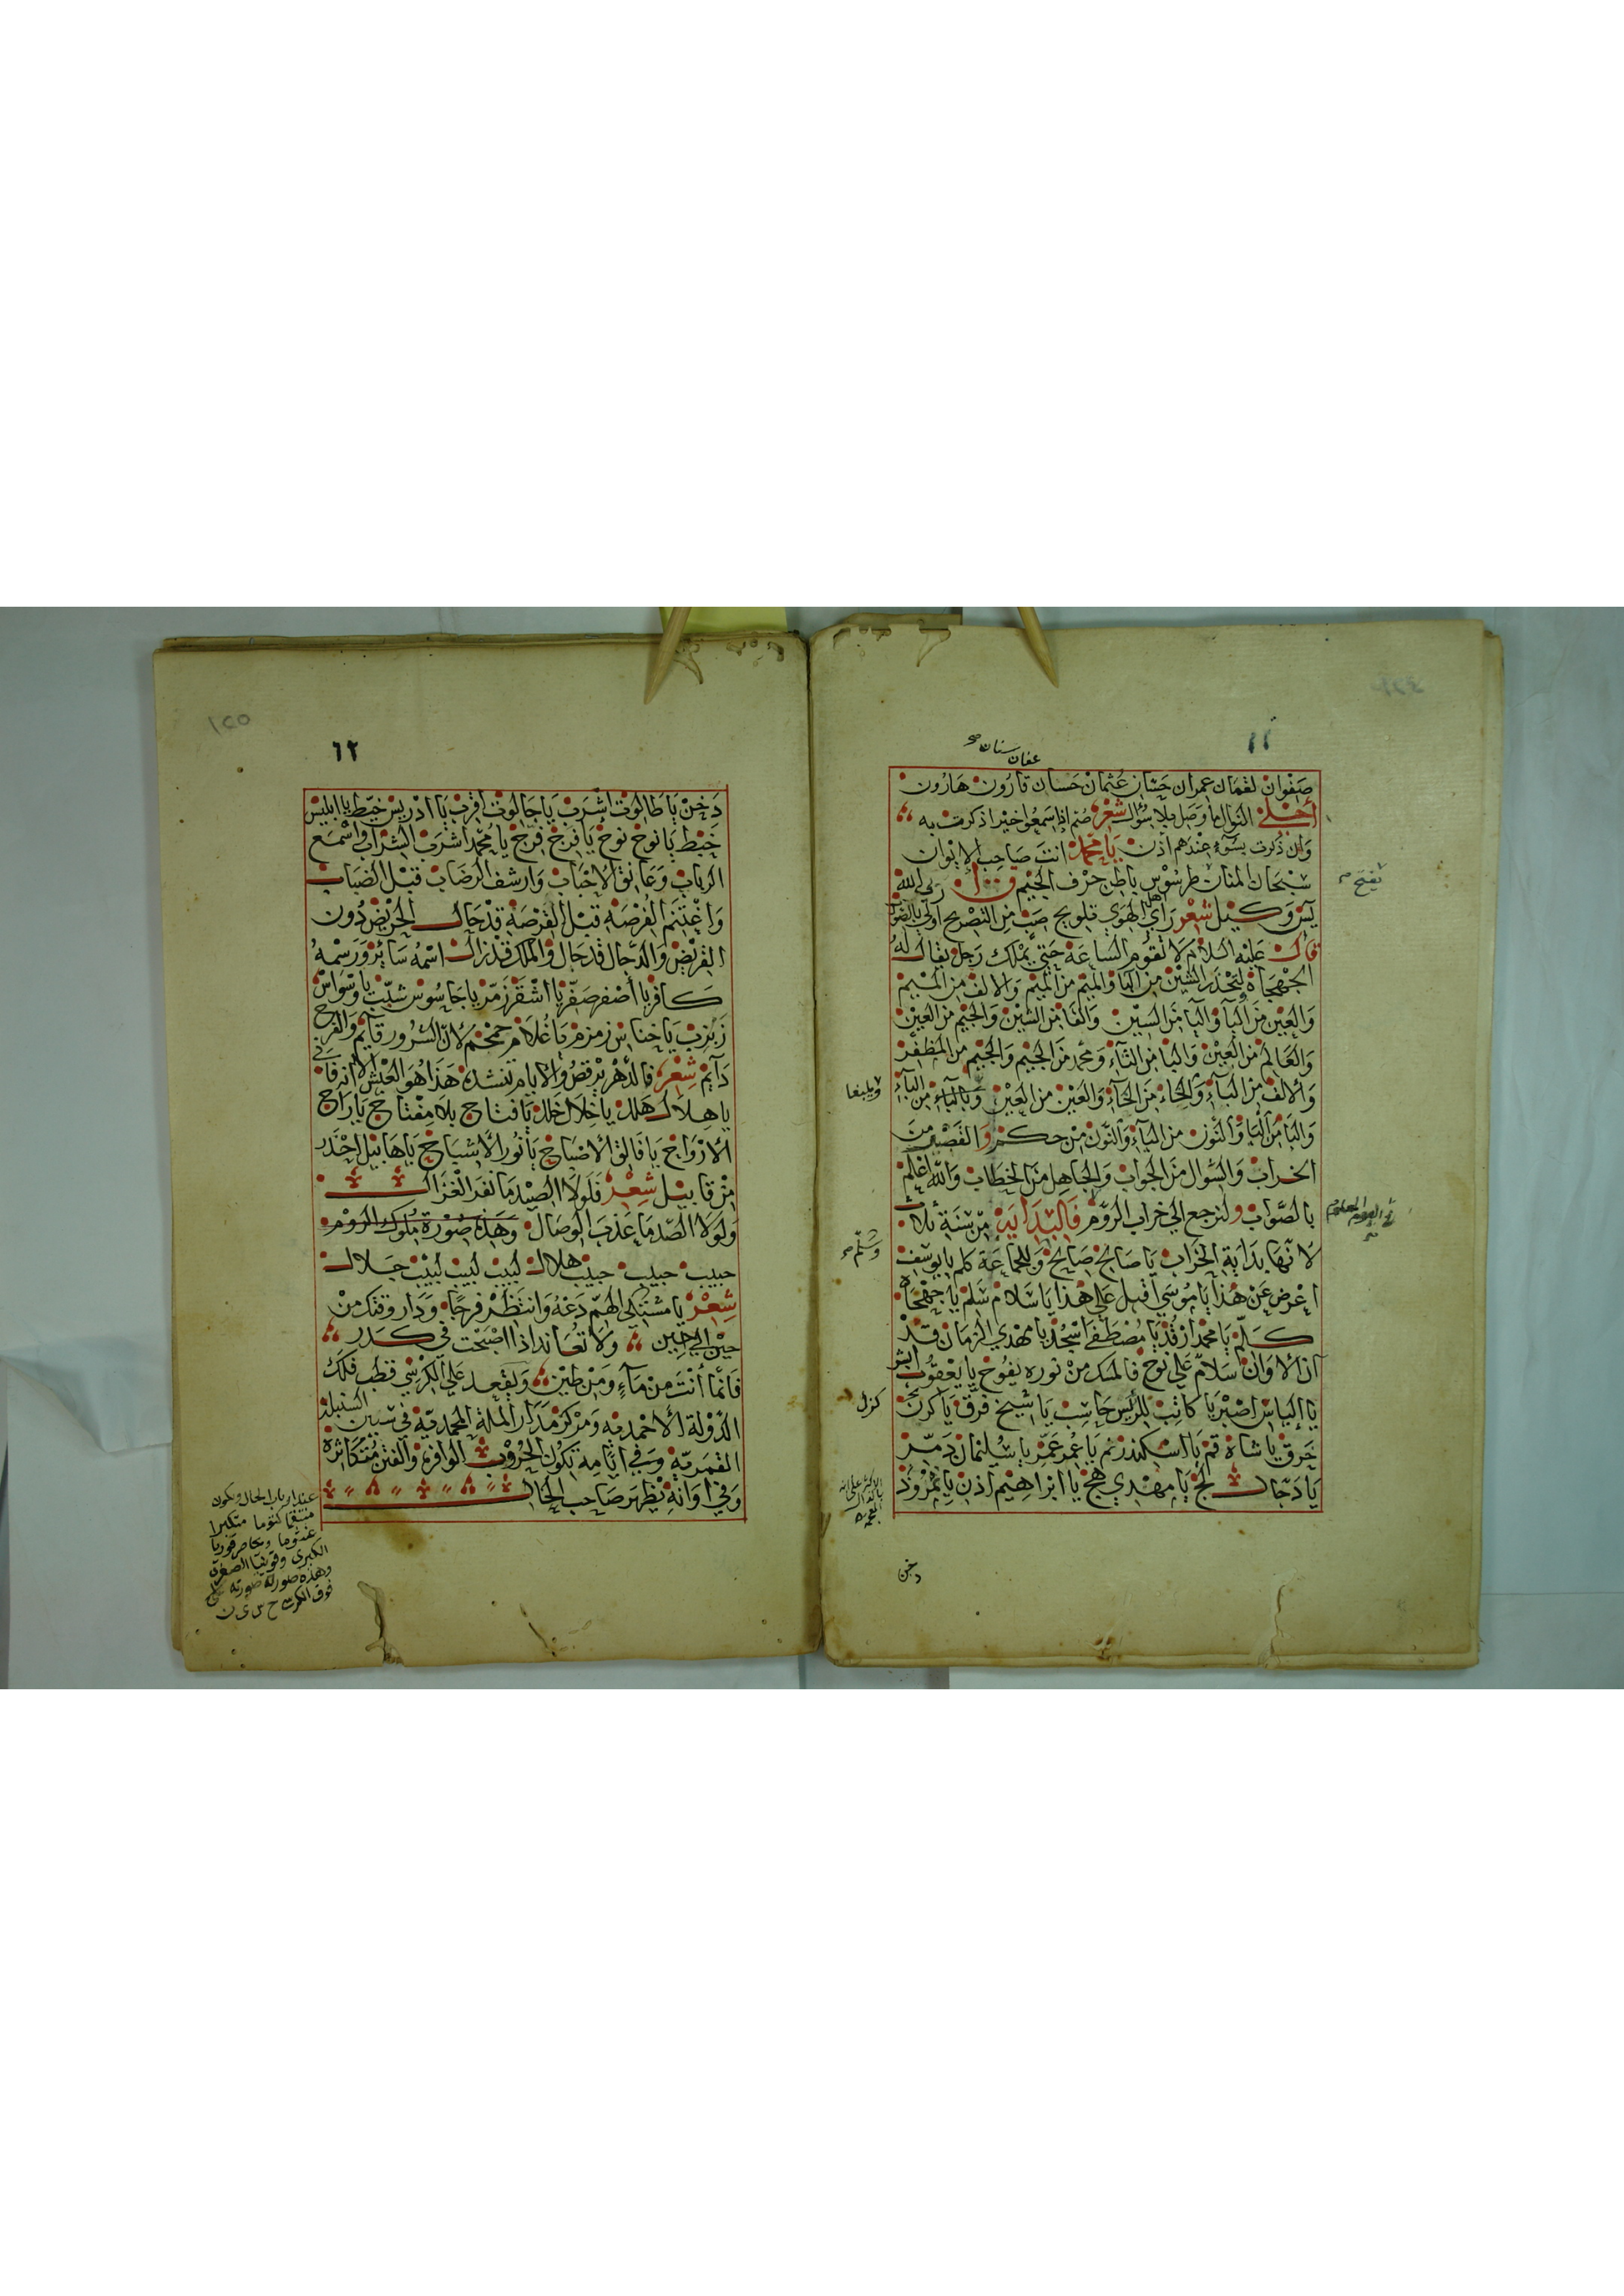 ١١
عفان سنان صح
صفوان لقمان عمران عثمان حسان قارون هارون
أحلى النوال ما وصل بلا سؤال شعر صم إذا سمعوا خيرا ذكرت به
وان ذكرت بسوء عندهم أذن يا محمد انت صاحب الايوان
سبحان المنان طرسوس باطن حرف الجيم ق ربي الله
يس وكيل شعر رأي أهل الهوى تلويح صب من التصريح أولى بالصواب
قال عليه السلام لا تقوم الساعة حتى يملك رجل يقال له
الجهجاه وليحذر الشين من الميم والميم من الميم والالف من الميم
والعين من الباء والباء من السين والفا من الشين والجيم من العين
والعالم من العين واليا من الثاء ومحمد من الجيم والجيم من المظفر
والالف من الباء والحاء من الحاء والعين من العين وبالباء من الباء
والبا من الباء والنون من الباء والنون من حكم والقصر من
الخراب والسؤال من الجواب والجاهل من الخطاب والله اعلم
بالصواب ولنرجع الى خراب الروم فالبداية من سنة ثلاث
لانها بداية الخراب يا صالح صالح وللجماعة كلم يا يوسف
اعرض عن هذا يا موسى اقبل على هذا يا سلام سلم يا جهجاه
كلم يا محمد ارقد يا مصطفى اسجد يا مهدي الزمان قد
آن الاوان سلام على نوح فالمسك من نوره يفوح يا يعقوب ابشر
يا إلياس اصبر يا كاتب للرئيس حاسب يا شيخ فرق يا كرخ
خرق يا شاه قم يا اسكندر نم يا عمر عمر يا سليمان دمر
يا دجال لج يا مهدي هج يا ابراهيم اذن يا نمرود
دخن
١٢
دخن يا طالوت اشرب يا جالوت اقرب يا ادريس خيط يا ابليس
خبط يا نوح نوح يا فرج فرج يا محمد اشرب الشراب واسمع
الرباب وعانق الاحباب وارشف الرضاب قبل الضباب
واغتنم الفرصة قبل القرصة قد حال الحريض دون
القريض والدجال قد جال والملك قد زال اسمه سايز ورسمه
كافر يا أصفر صفر يا اشقر زمر يا جاسوس شيب يا وسواس
زبزب يا خناس زمزم يا غلام حمحم لان السرور قايم والفرح
دايم شعر فالدهر يرقص والايام تنشده هذا هو العيش الا انه فاني
يا هلال هلل يا خلال خلل يا فتاح بلا مفتاح يا راح
الارواح يا فالق الاصباح يا نور الاشباح يا هابيل احذر
من قابيل شعر فلولا الصيد ما نفر الغزال
ولولا الصد ما عذب الوصال وهذه صورة ملوك الروم
حبيب حبيب حبيب هلال لبيب لبيب لبيب جلال
شعر يا مشتكي الهم دعه وانتظر فرجا ودار وقتك من
حين الى حين ولا تعاند اذا اصبحت في كدر
فانما أنت من ماء ومن طين ويقعد على الكرسي قطب فلك
الدولة الاحمدية ومركز مدار الملة المحمدية في سنين السنبلة
القمرية وفي ايامه تكون الحروب الوافرة والفتن متكاثرة
وفي اوانه يظهر صاحب الخال
عند ارباب الحال ويكون
كتوما متكبرا
الكبرى وقونيا الصغرى
وهذه صورته
فوق الكرسي ح س ي ن